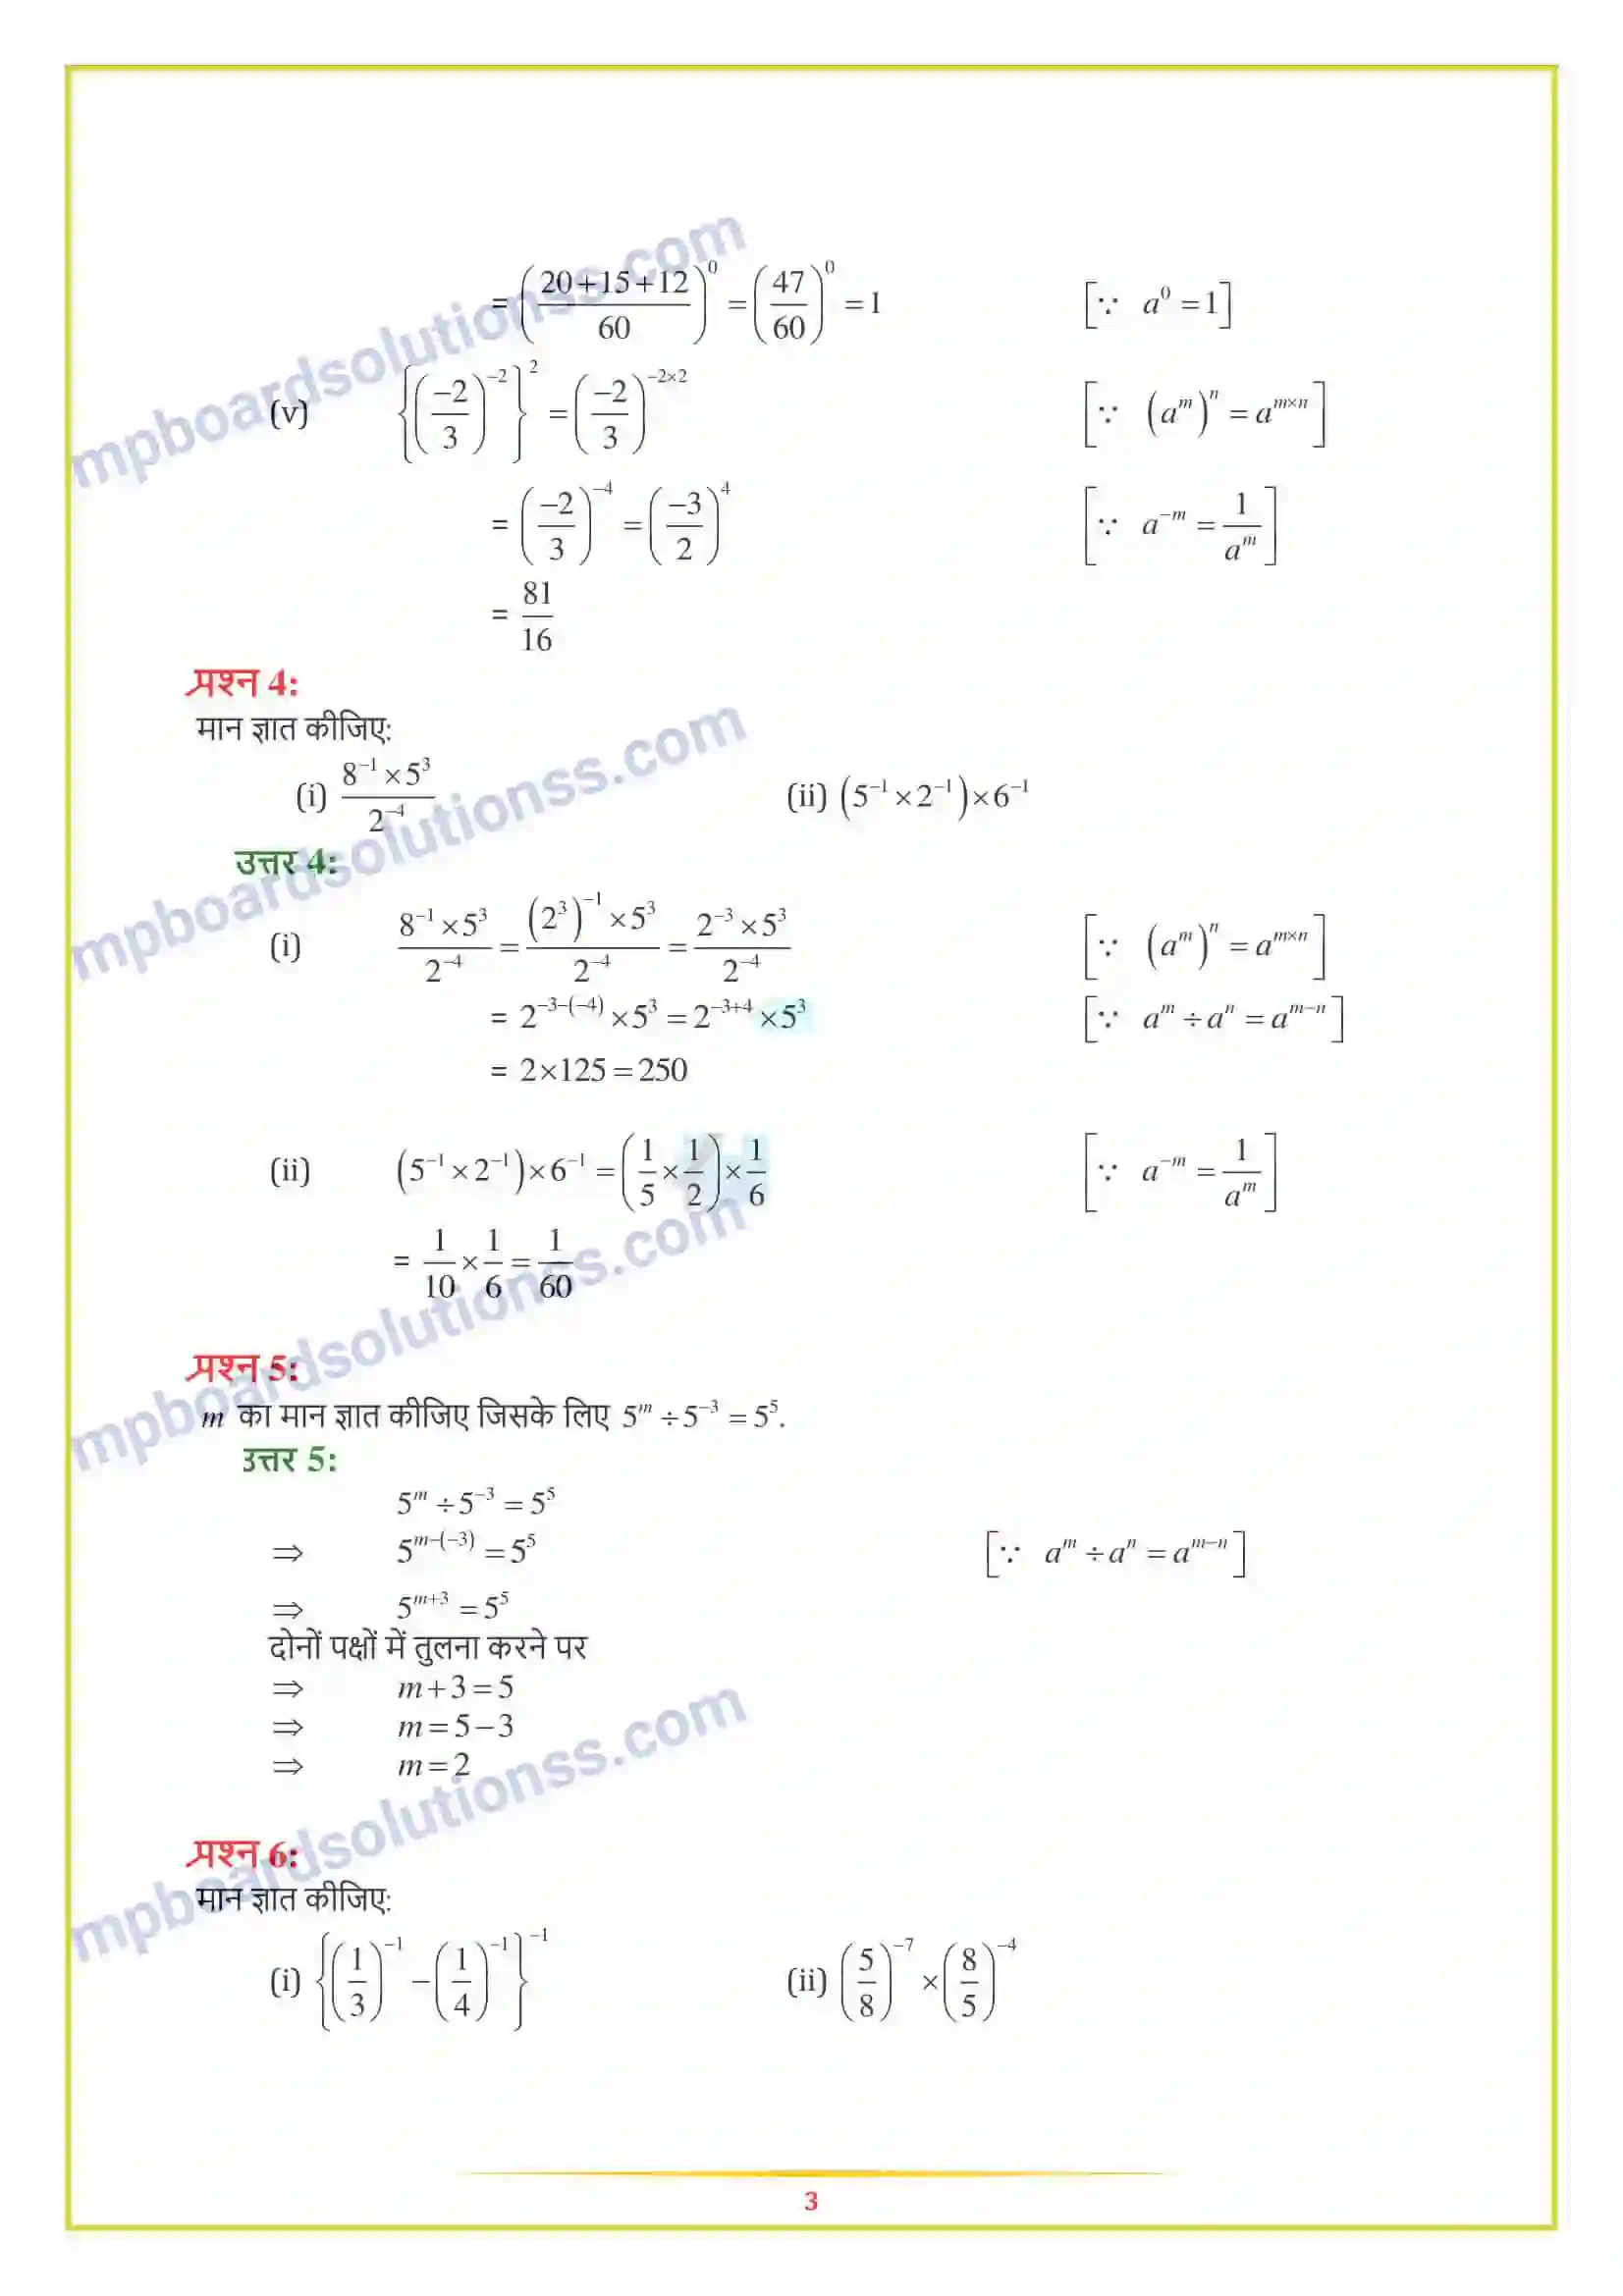 = ((20+15+12)/60)⁰ = (47/60)⁰ = 1 [∵ a⁰ = 1]
(v) {(−2/3)⁻²}² = (−2/3)^(−2×2) [∵ (aᵐ)ⁿ = a^(m×n)]
= (−2/3)⁻⁴ = (−3/2)⁴ [∵ a⁻ᵐ = 1/aᵐ]
= 81/16
प्रश्न 4:
मान ज्ञात कीजिए:
(i) (8⁻¹ × 5³)/2⁻⁴ (ii) (5⁻¹ × 2⁻¹) × 6⁻¹
उत्तर 4:
(i) (8⁻¹ × 5³)/2⁻⁴ = ((2³)⁻¹ × 5³)/2⁻⁴ = (2⁻³ × 5³)/2⁻⁴ [∵ (aᵐ)ⁿ = a^(m×n)]
= 2^(−3−(−4)) × 5³ = 2^(−3+4) × 5³ [∵ aᵐ ÷ aⁿ = a^(m−n)]
= 2×125 = 250
(ii) (5⁻¹ × 2⁻¹) × 6⁻¹ = (1/5 × 1/2) × 1/6 [∵ a⁻ᵐ = 1/aᵐ]
= 1/10 × 1/6 = 1/60
प्रश्न 5:
m का मान ज्ञात कीजिए जिसके लिए 5ᵐ ÷ 5⁻³ = 5⁵.
उत्तर 5:
5ᵐ ÷ 5⁻³ = 5⁵
⇒ 5^(m−(−3)) = 5⁵ [∵ aᵐ ÷ aⁿ = a^(m−n)]
⇒ 5^(m+3) = 5⁵
दोनों पक्षों में तुलना करने पर
⇒ m + 3 = 5
⇒ m = 5 − 3
⇒ m = 2
प्रश्न 6:
मान ज्ञात कीजिए:
(i) {(1/3)⁻¹ − (1/4)⁻¹}⁻¹ (ii) (5/8)⁻⁷ × (8/5)⁻⁴
3
mpboardsolutionss.com
mpboardsolutionss.com
mpboardsolutionss.com
mpboardsolutionss.com